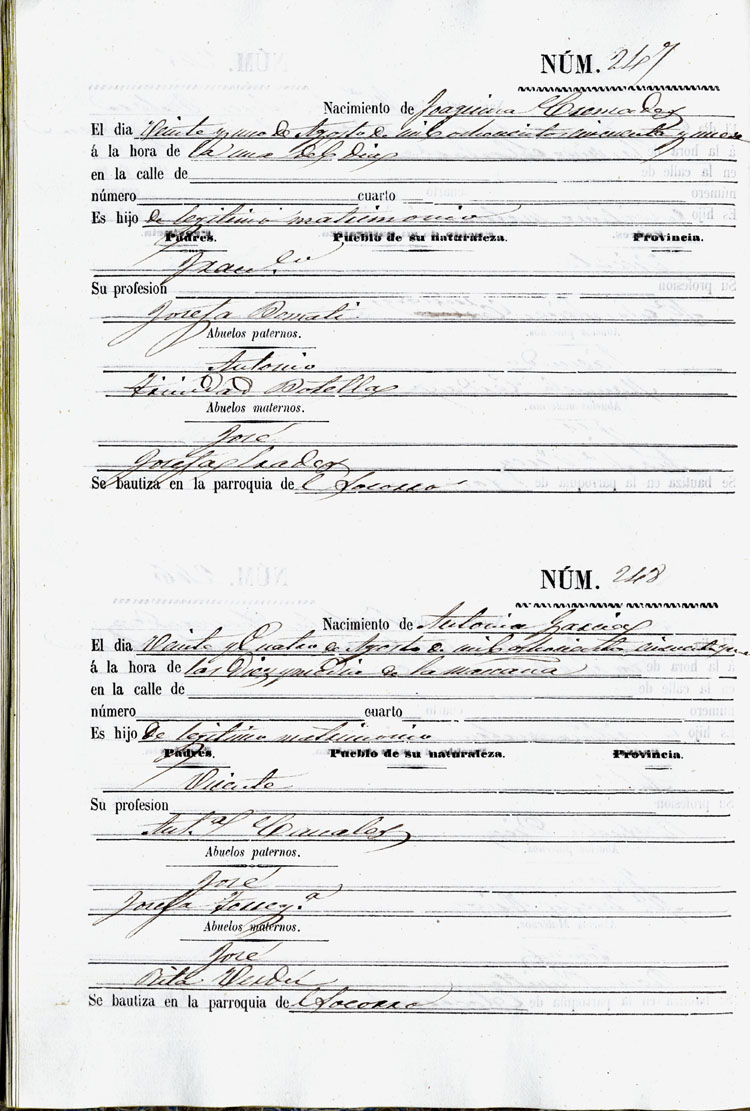 NÚM. 247
Nacimiento de Joaquina Cremades
El dia Veinte y uno de Agosto de mil ochocientos cincuenta y nueve
á la hora de la una del dia
en la calle de
número cuarto
Es hijo de legitimo matrimonio
Padres. Pueblo de su naturaleza. Provincia.
Franc.co
Su profesion
Josefa Bernati
Abuelos paternos.
Antonio
Trinidad Botella
Abuelos maternos.
José
Josefa
Se bautiza en la parroquia de l Socorro
NÚM. 248
Nacimiento de Antonia Garcia
El dia Veinte y Cuatro de Agosto de mil ochocientos cincuenta y
á la hora de las Diez y media de la mañana
en la calle de
número cuarto
Es hijo de legitimo matrimonio
Padres. Pueblo de su naturaleza. Provincia.
Vicente
Su profesion
Ant.a Canales
Abuelos paternos.
José
Josefa
Abuelos maternos.
José
Rita Verdú
Se bautiza en la parroquia de l Socorro